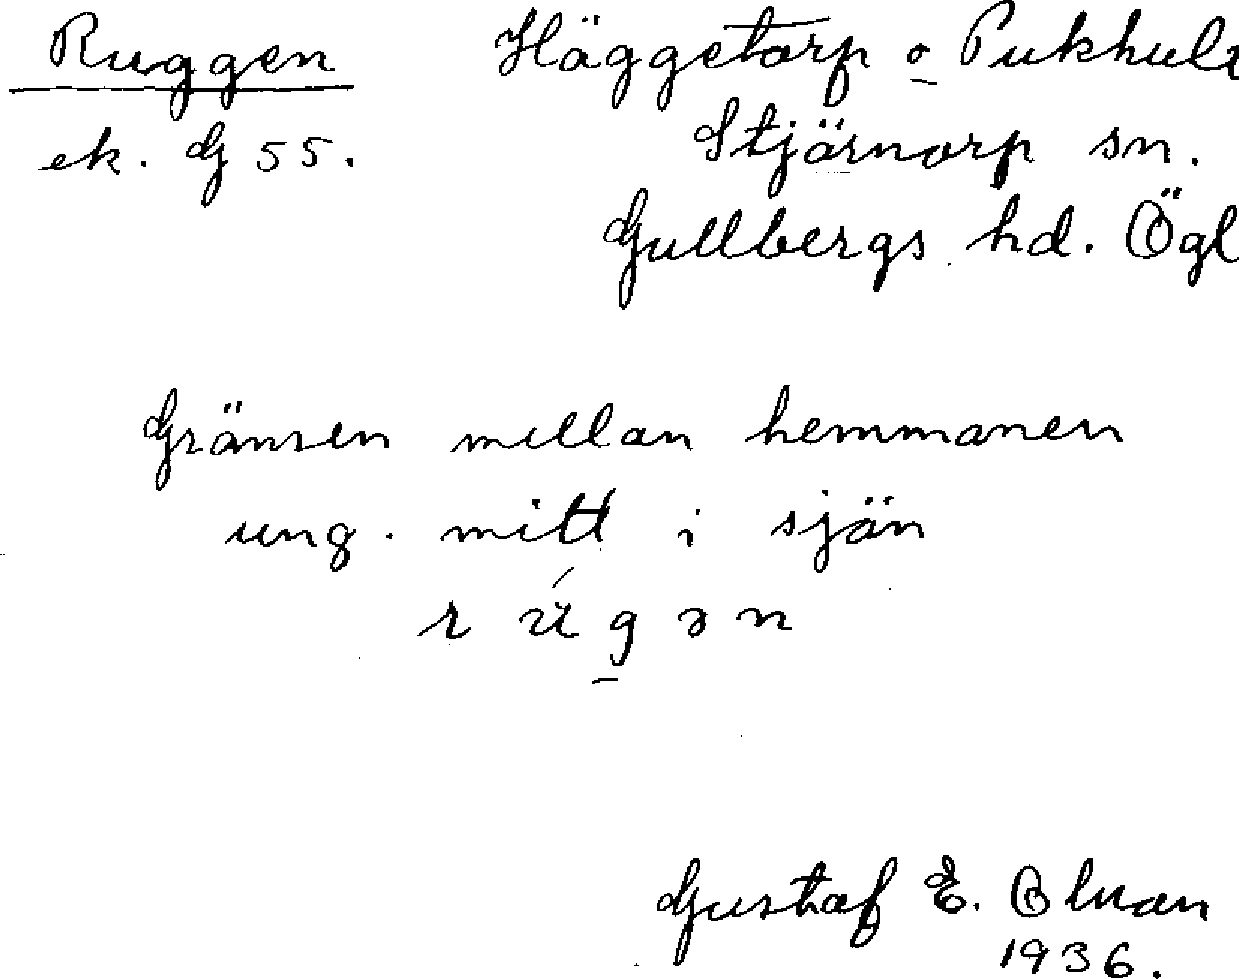 Ruggen Häggetorp o Pukhult
ek. G 55. Stjärnorp sn.
Gullbergs hd. Ögl
Gränsen mellan hemmanen
ung. mitt i sjön
rúgən
Gustaf E. Olman
1936.